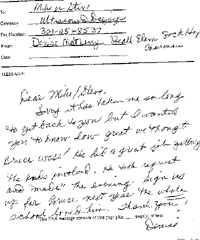 To: Mike or Steve
Company:
Fax Number: 301-25-8537
From: Denise
Date:
MESSAGE:
Dear Mike/Steve,
Sorry it has taken me so long
to get back to you but I wanted
you to know how great we thought
Bruce was! He did a great job getting
the kids involved. He took requests
and "made" the evening. Sign us
up for Bruce next year. The whole
school loved him. Thank you!
Denise